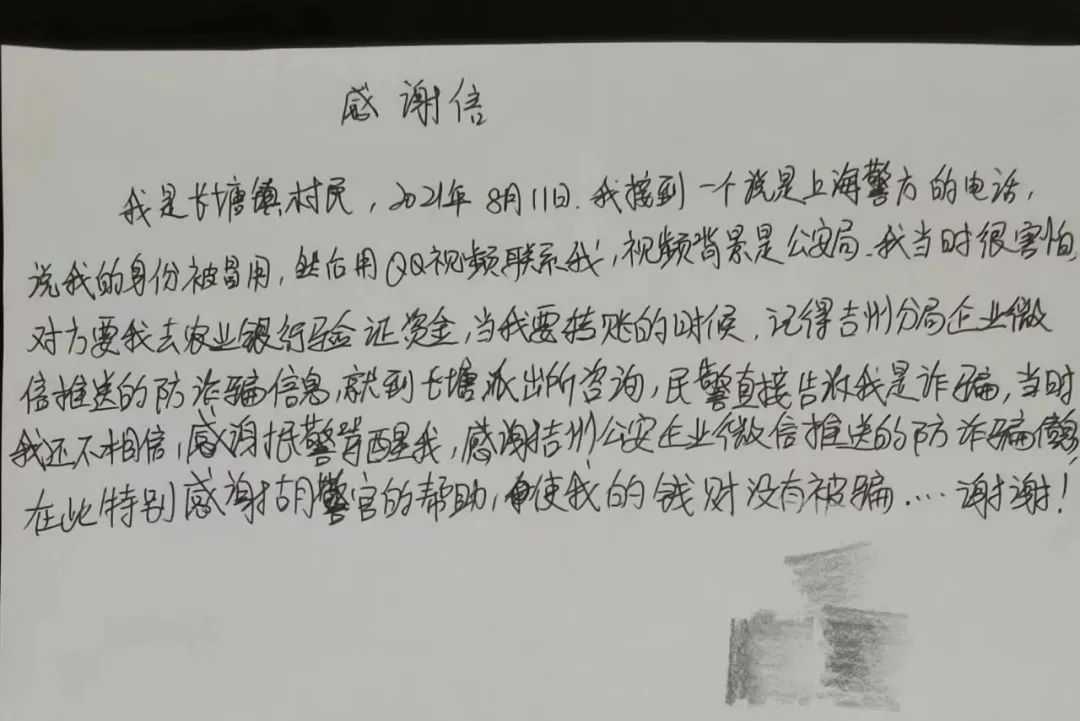 感谢信
我是长塘镇村民，2021年8月11日.我接到一个说是上海警方的电话，
说我的身份被冒用，然后用QQ视频联系我，视频背景是公安局.我当时很害怕，
对方要我去农业银行验证资金，当我要转账的时候，记得吉州分局企业微
信推送的防诈骗信息，就到长塘派出所咨询，民警直接告诉我是诈骗，当时
我还不相信，感谢民警提醒我，感谢吉州公安企业微信推送的防诈骗信息，
在此特别感谢胡警官的帮助，使我的钱财没有被骗....谢谢！